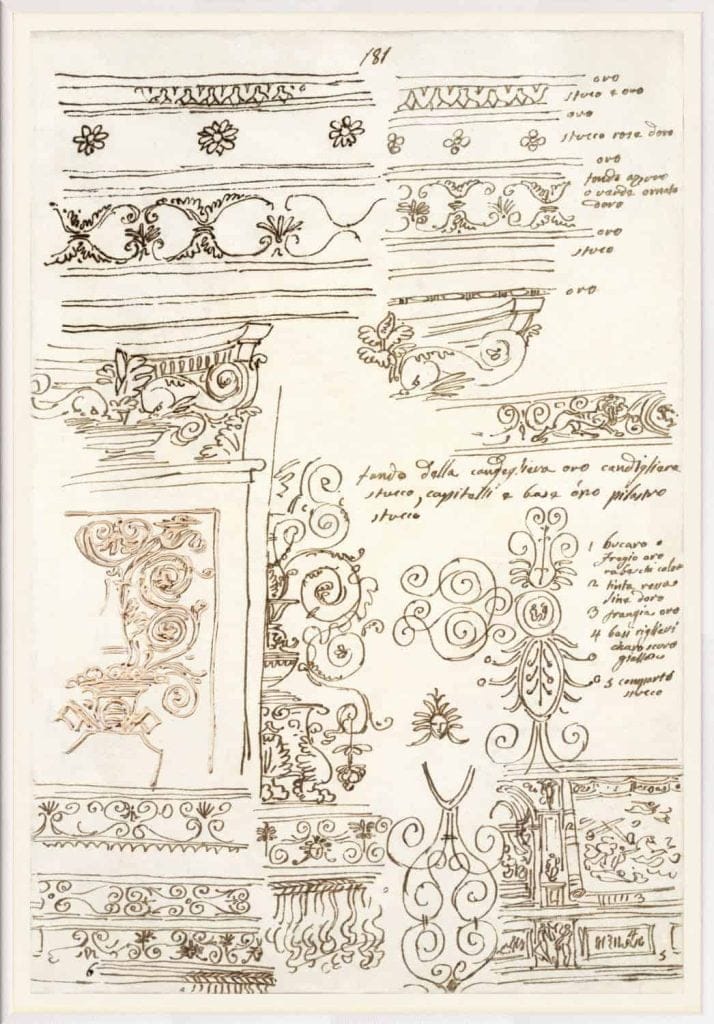 181
oro
stuco e oro
oro
stucco rose doro
oro
fondo azuro
o verde ornato
doro
oro
stuco
oro
fondo della oro candigliera
stucco, capitelli e base oro pilastro
stucco
1 bucaro e
fregio oro
2 tinta rossa
fine doro
3 frangia oro
4 basi riglievi
charo scuro
5 comparto
stucco
2
3
4
5
6